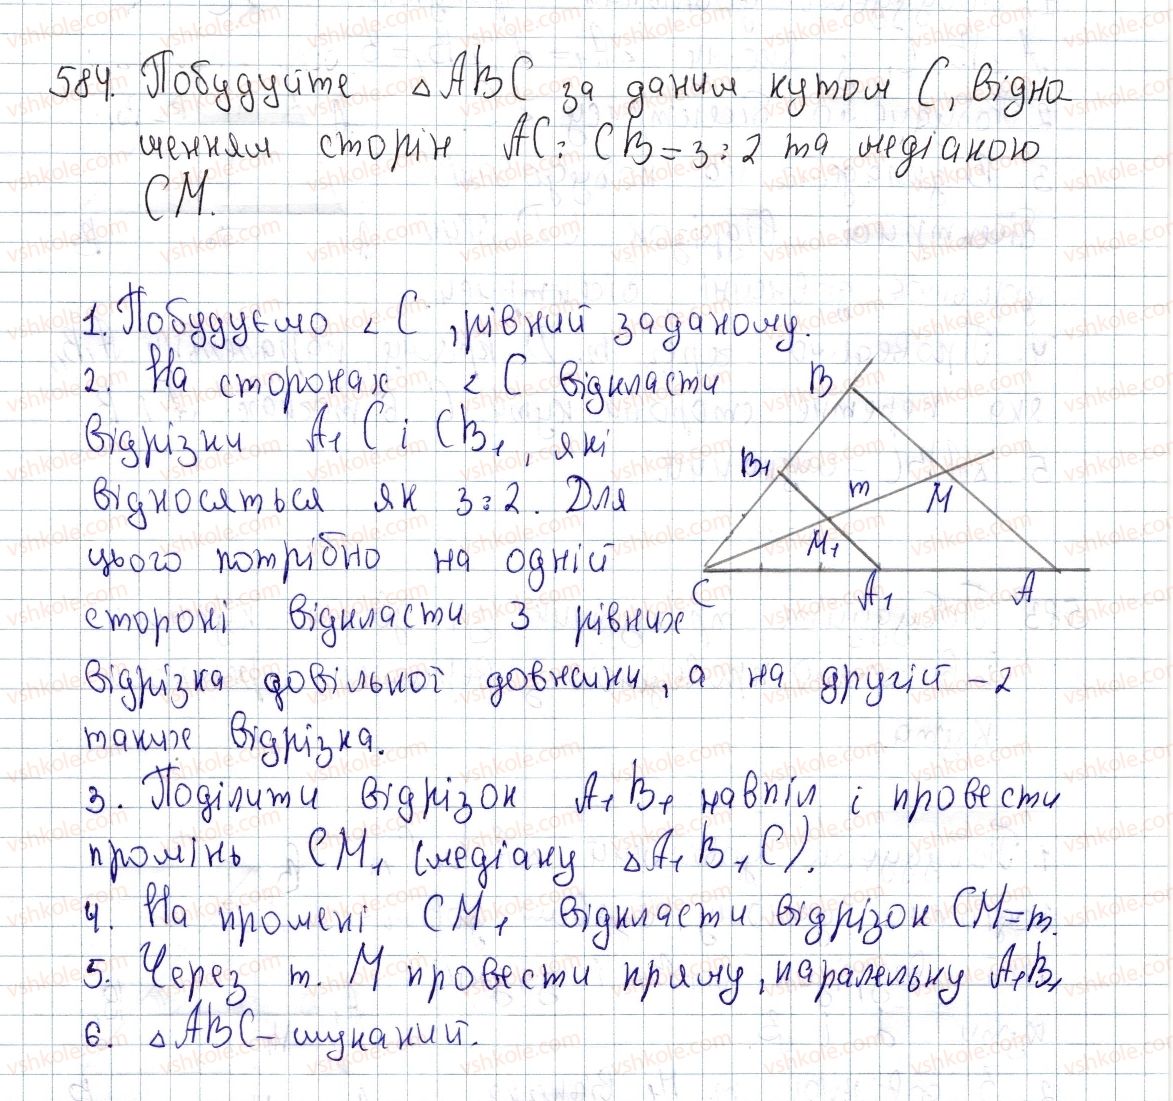 584. Побудуйте △ABC за даним кутом C, відно
шенням сторін AC:CB=3:2 та медіаною
CM.
1. Побудуємо ∠C, рівний заданому.
2. На сторонах ∠C відкласти
відрізки A₁C і CB₁, які
відносяться як 3:2. Для
цього потрібно на одній
стороні відкласти 3 рівних
відрізка довільної довжини, а на другій – 2
таких відрізка.
3. Поділити відрізок A₁B₁ навпіл і провести
промінь CM₁ (медіану △A₁B₁C).
4. На промені CM₁ відкласти відрізок CM=m.
5. Через т. M провести пряму, паралельну A₁B₁
6. △ABC – шуканий.
B
B₁
m
M
M₁
C
A₁
A
vshkole.com